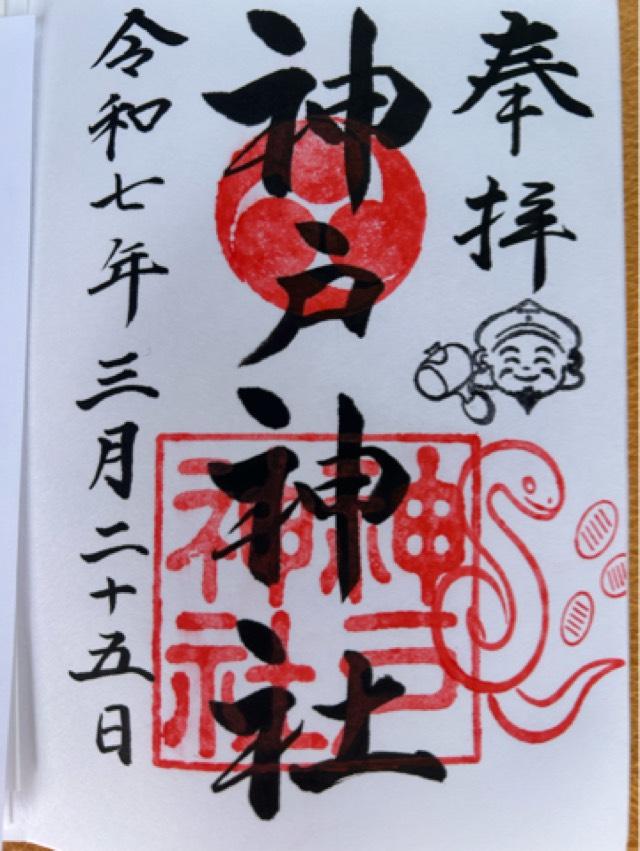 奉拝
神戸神社
神戸神社
令和七年三月二十五日